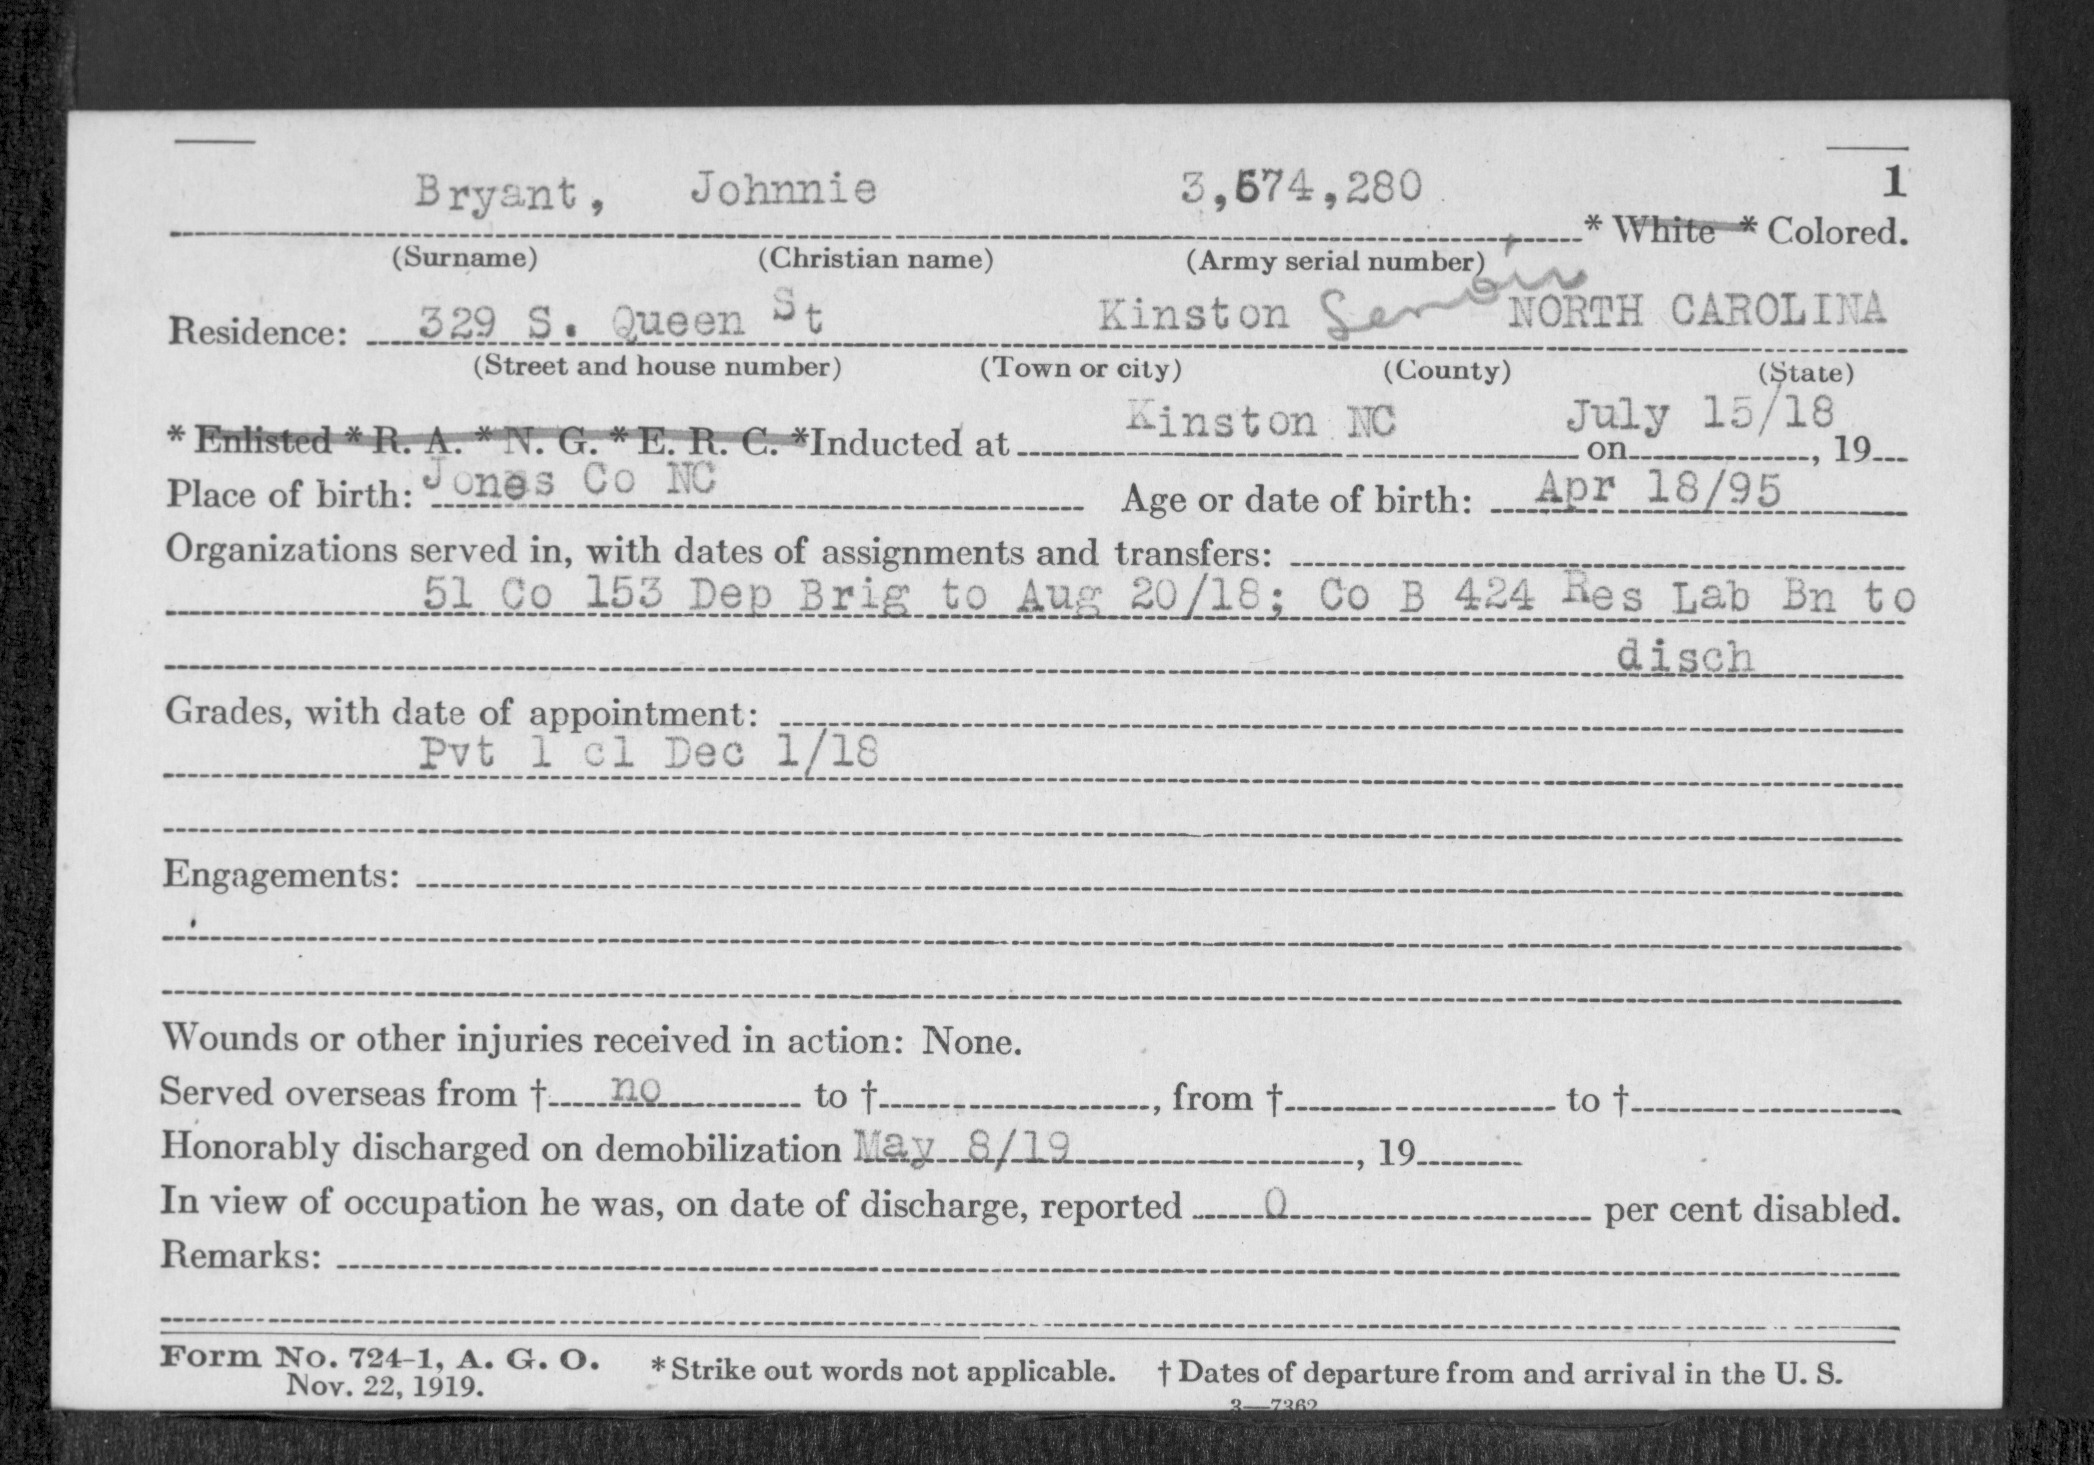 Bryant, Johnnie 3,574,280 1
* White * Colored.
(Surname) (Christian name) (Army serial number)
Residence: 329 S. Queen St Kinston Lenoir NORTH CAROLINA
(Street and house number) (Town or city) (County) (State)
* Enlisted * R. A. * N. G. * E. R. C. *Inducted at Kinston NC on July 15/18, 19
Place of birth: Jones Co NC Age or date of birth: Apr 18/95
Organizations served in, with dates of assignments and transfers:
51 Co 153 Dep Brig to Aug 20/18; Co B 424 Res Lab Bn to
disch
Grades, with date of appointment:
Pvt 1 cl Dec 1/18
Engagements:
Wounds or other injuries received in action: None.
Served overseas from † no to †, from † to †
Honorably discharged on demobilization May 8/19, 19
In view of occupation he was, on date of discharge, reported 0 per cent disabled.
Remarks:
Form No. 724-1, A. G. O. *Strike out words not applicable. † Dates of departure from and arrival in the U. S.
Nov. 22, 1919.
3—7362